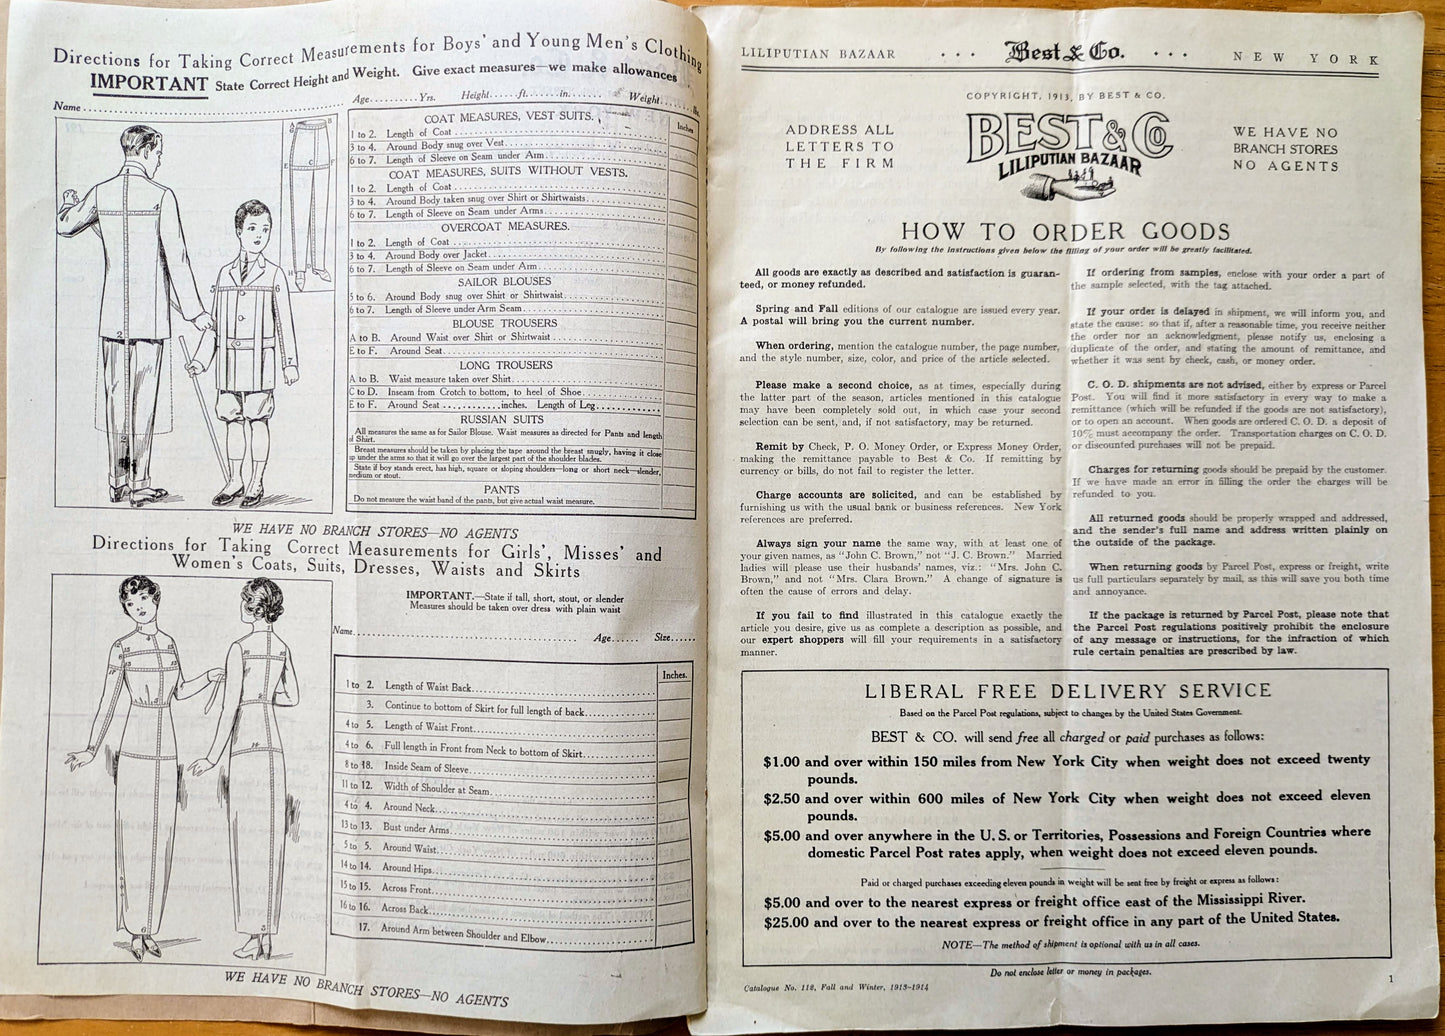 Directions for Taking Correct Measurements for Boys' and Young Men's Clothing
IMPORTANT State Correct Height and Weight. Give exact measures—we make allowances
Name
Age..........Yrs. Height......ft......in......... Weight.......lbs.
COAT MEASURES, VEST SUITS. Inches
1 to 2. Length of Coat
3 to 4. Around Body snug over Vest
6 to 7. Length of Sleeve on Seam under Arm
COAT MEASURES, SUITS WITHOUT VESTS.
1 to 2. Length of Coat
3 to 4. Around Body taken snug over Shirt or Shirtwaists
6 to 7. Length of Sleeve on Seam under Arms
OVERCOAT MEASURES.
1 to 2. Length of Coat
3 to 4. Around Body over Jacket
6 to 7. Length of Sleeve on Seam under Arm
SAILOR BLOUSES
5 to 6. Around Body snug over Shirt or Shirtwaist
6 to 7. Length of Sleeve under Arm Seam
BLOUSE TROUSERS
A to B. Around Waist over Shirt or Shirtwaist
E to F. Around Seat
LONG TROUSERS
A to B. Waist measure taken over Shirt
C to D. Inseam from Crotch to bottom, to heel of Shoe
E to F. Around Seat ............inches. Length of Leg
RUSSIAN SUITS
All measures the same as for Sailor Blouse. Waist measures as directed for Pants and length
of Shirt.
Breast measures should be taken by placing the tape around the breast snugly, having it close
up under the arms so that it will go over the largest part of the shoulder blades.
State if boy stands erect, has high, square or sloping shoulders—long or short neck—slender,
medium or stout.
PANTS
Do not measure the waist band of the pants, but give actual waist measure.
WE HAVE NO BRANCH STORES—NO AGENTS
Directions for Taking Correct Measurements for Girls', Misses' and
Women's Coats, Suits, Dresses, Waists and Skirts
IMPORTANT.—State if tall, short, stout, or slender
Measures should be taken over dress with plain waist
Name
Age...... Size......
Inches.
1 to 2. Length of Waist Back
3. Continue to bottom of Skirt for full length of back
4 to 5. Length of Waist Front
4 to 6. Full length in Front from Neck to bottom of Skirt
8 to 18. Inside Seam of Sleeve
11 to 12. Width of Shoulder at Seam
4 to 4. Around Neck
13 to 13. Bust under Arms
5 to 5. Around Waist
14 to 14. Around Hips
15 to 15. Across Front
16 to 16. Across Back
17. Around Arm between Shoulder and Elbow
WE HAVE NO BRANCH STORES—NO AGENTS
LILIPUTIAN BAZAAR ... Best & Co. ... NEW YORK
COPYRIGHT, 1913, BY BEST & CO.
ADDRESS ALL
LETTERS TO
THE FIRM
BEST & CO
LILIPUTIAN BAZAAR
WE HAVE NO
BRANCH STORES
NO AGENTS
HOW TO ORDER GOODS
By following the instructions given below the filling of your order will be greatly facilitated.
All goods are exactly as described and satisfaction is guaran-
teed, or money refunded.
Spring and Fall editions of our catalogue are issued every year.
A postal will bring you the current number.
When ordering, mention the catalogue number, the page number,
and the style number, size, color, and price of the article selected.
Please make a second choice, as at times, especially during
the latter part of the season, articles mentioned in this catalogue
may have been completely sold out, in which case your second
selection can be sent, and, if not satisfactory, may be returned.
Remit by Check, P. O. Money Order, or Express Money Order,
making the remittance payable to Best & Co. If remitting by
currency or bills, do not fail to register the letter.
Charge accounts are solicited, and can be established by
furnishing us with the usual bank or business references. New York
references are preferred.
Always sign your name the same way, with at least one of
your given names, as "John C. Brown," not "J. C. Brown." Married
ladies will please use their husbands' names, viz.: "Mrs. John C.
Brown," and not "Mrs. Clara Brown." A change of signature is
often the cause of errors and delay.
If you fail to find illustrated in this catalogue exactly the
article you desire, give us as complete a description as possible, and
our expert shoppers will fill your requirements in a satisfactory
manner.
If ordering from samples, enclose with your order a part of
the sample selected, with the tag attached.
If your order is delayed in shipment, we will inform you, and
state the cause: so that if, after a reasonable time, you receive neither
the order nor an acknowledgment, please notify us, enclosing a
duplicate of the order, and stating the amount of remittance, and
whether it was sent by check, cash, or money order.
C. O. D. shipments are not advised, either by express or Parcel
Post. You will find it more satisfactory in every way to make a
remittance (which will be refunded if the goods are not satisfactory),
or to open an account. When goods are ordered C. O. D. a deposit of
10% must accompany the order. Transportation charges on C. O. D.
or discounted purchases will not be prepaid.
Charges for returning goods should be prepaid by the customer.
If we have made an error in filling the order the charges will be
refunded to you.
All returned goods should be properly wrapped and addressed,
and the sender's full name and address written plainly on
the outside of the package.
When returning goods by Parcel Post, express or freight, write
us full particulars separately by mail, as this will save you both time
and annoyance.
If the package is returned by Parcel Post, please note that
the Parcel Post regulations positively prohibit the enclosure
of any message or instructions, for the infraction of which
rule certain penalties are prescribed by law.
LIBERAL FREE DELIVERY SERVICE
Based on the Parcel Post regulations, subject to changes by the United States Government.
BEST & CO. will send free all charged or paid purchases as follows:
$1.00 and over within 150 miles from New York City when weight does not exceed twenty
pounds.
$2.50 and over within 600 miles of New York City when weight does not exceed eleven
pounds.
$5.00 and over anywhere in the U. S. or Territories, Possessions and Foreign Countries where
domestic Parcel Post rates apply, when weight does not exceed eleven pounds.
Paid or charged purchases exceeding eleven pounds in weight will be sent free by freight or express as follows:
$5.00 and over to the nearest express or freight office east of the Mississippi River.
$25.00 and over to the nearest express or freight office in any part of the United States.
NOTE—The method of shipment is optional with us in all cases.
Do not enclose letter or money in packages.
Catalogue No. 118, Fall and Winter, 1913-1914
1